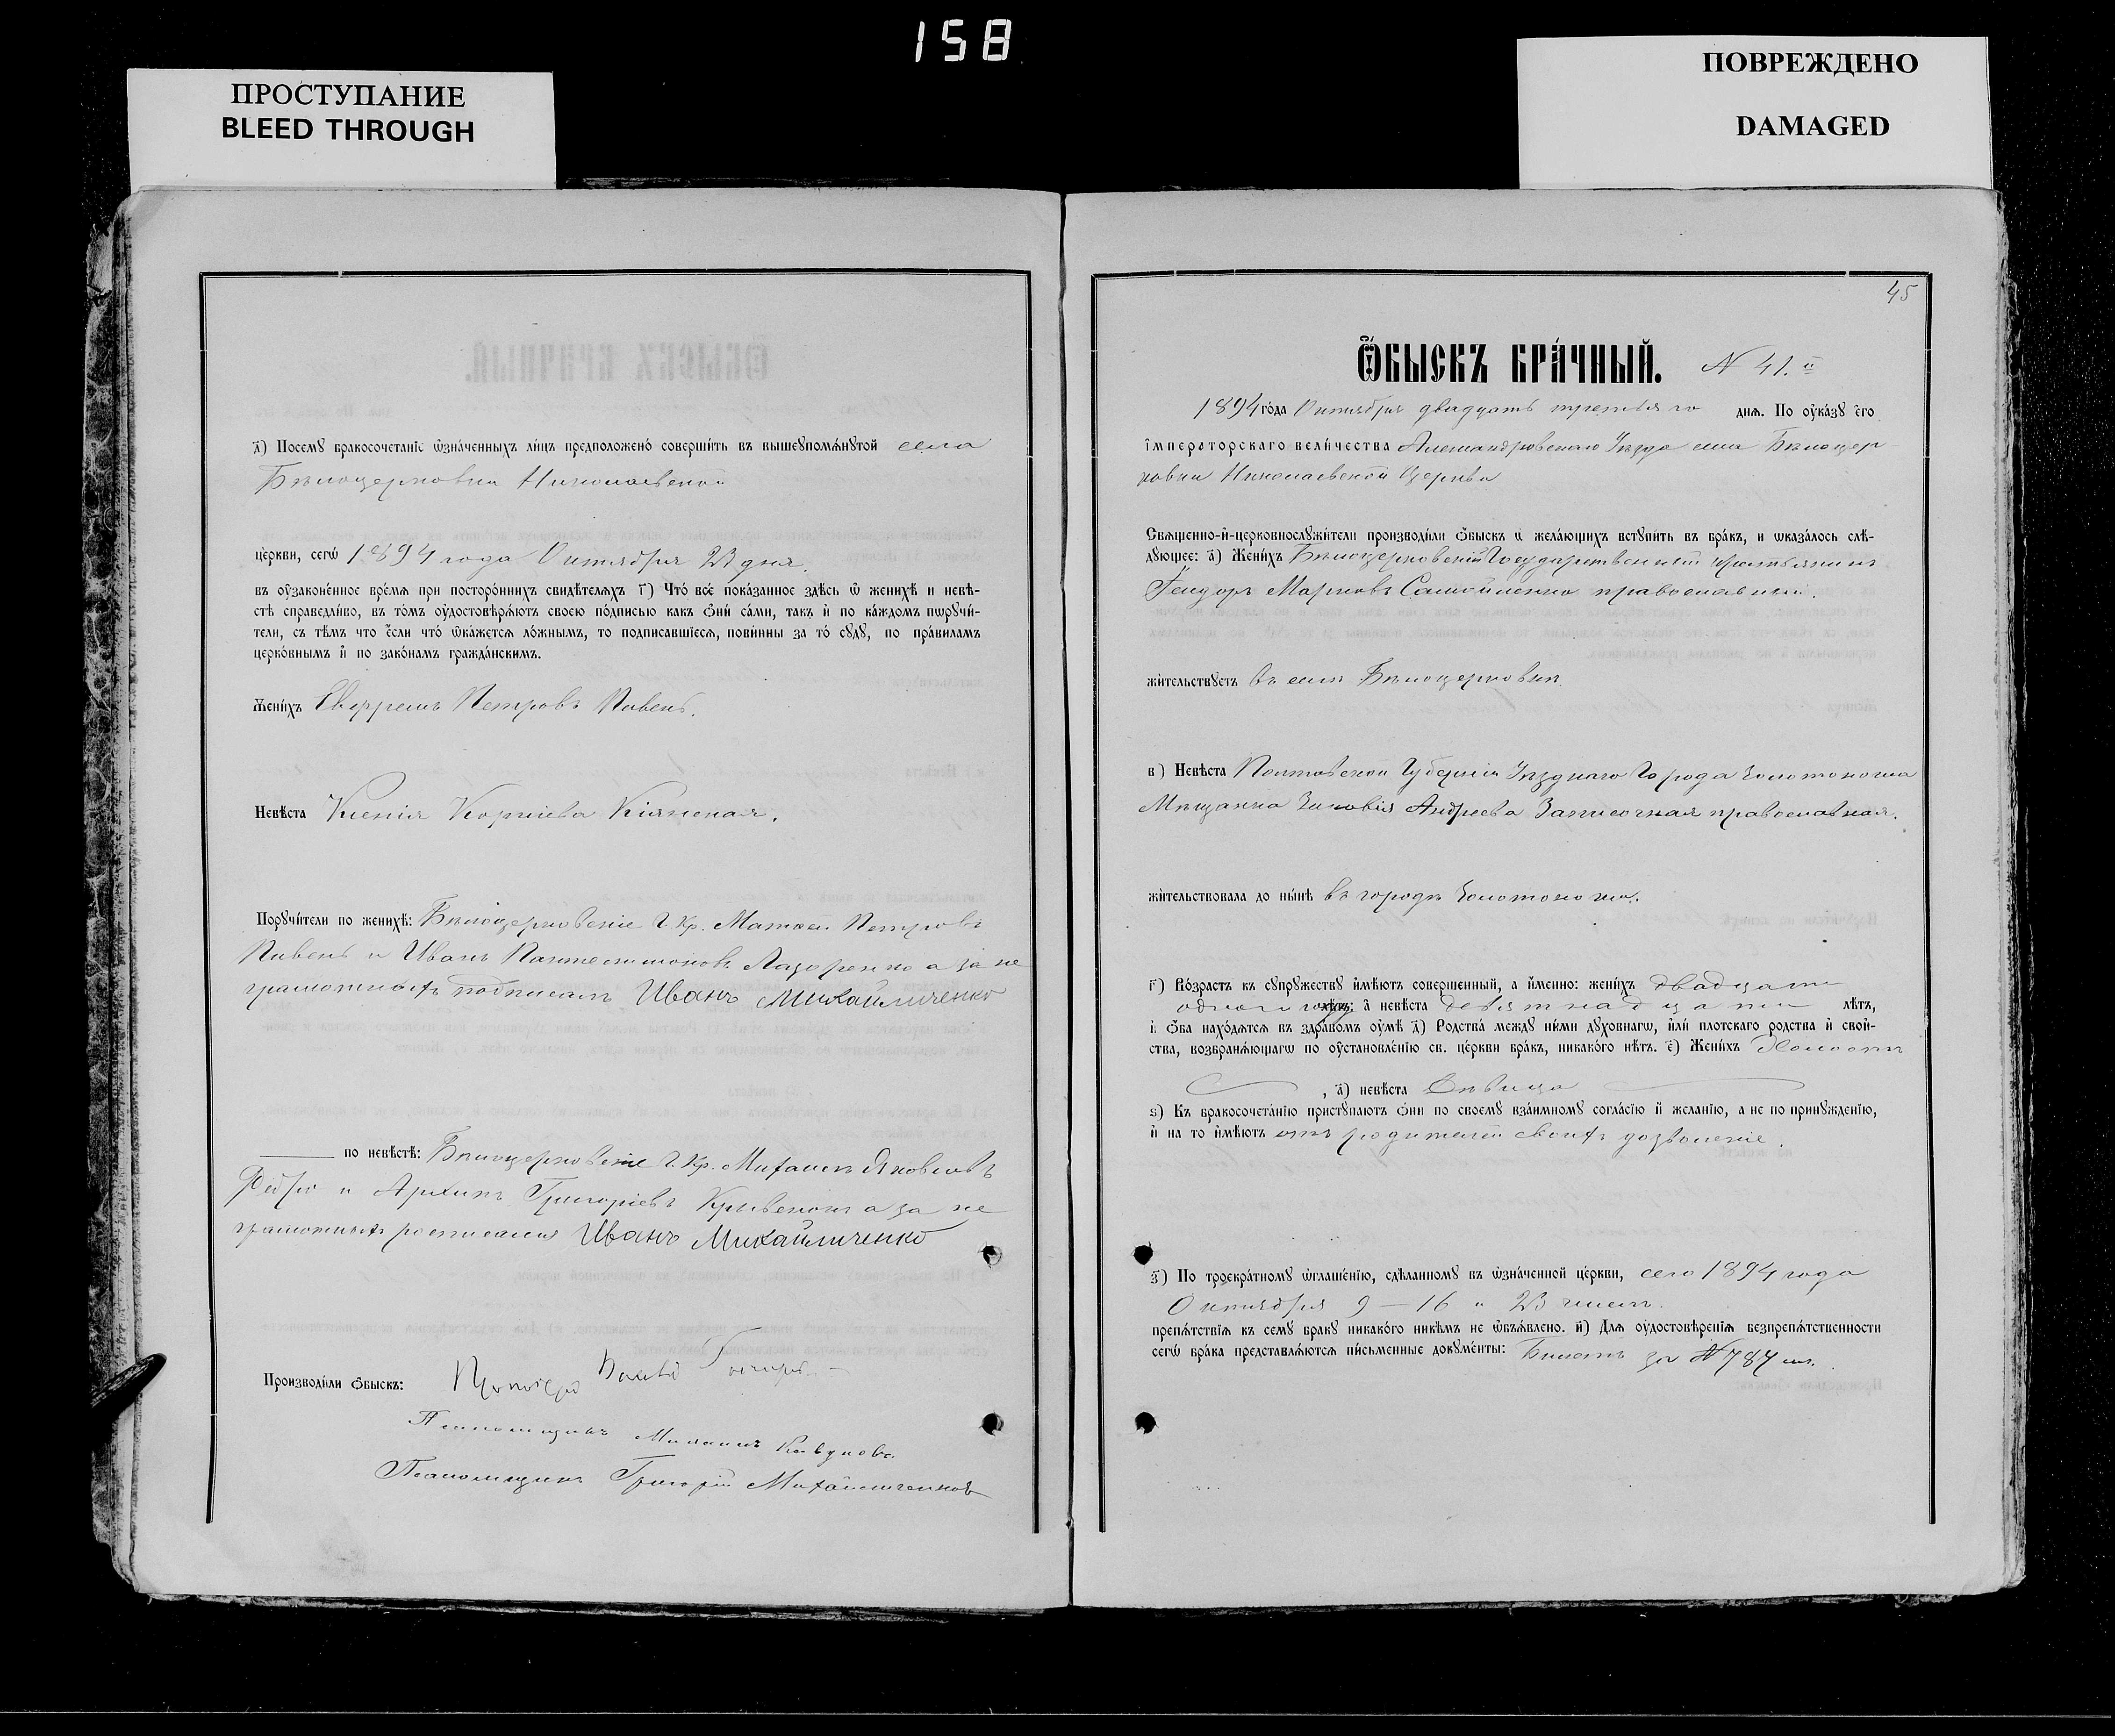 158
ПРОСТУПАНИЕ
BLEED THROUGH
ПОВРЕЖДЕНО
DAMAGED
д) Посемꙋ бракосочетаніе ѿзначенныхъ лицъ предположено совершить въ вышеꙋпомѧнꙋтой села
Бѣлоцерковки Николаевской
церкви, сегѡ 1894 года Октября 23 дня.
въ оузаконенное времѧ при постороннихъ свидѣтелѧхъ г) Что все показанное здѣсь ѿ женихѣ и невѣ-
стѣ справедливо, въ томъ оудостовѣрѧютъ своею подписью какъ они сами, такъ и по каждомъ пѡрꙋчи-
тели, съ тѣмъ что если что ѿкажетсѧ ложнымъ, то подписавшіесѧ, повинны за то сꙋдꙋ, по правиламъ
церковнымъ и по законамъ гражданскимъ.
Женихъ Евфремъ Петровъ Пивень.
Невѣста Ксенія Корніева Кіянская.
Порꙋчители по женихѣ: Бѣлоцерковскіе Г. Кр. Матвей Петровъ
Пивень и Иванъ Пантелимоновъ Лазоренко а за не
грамотныхъ подписалъ Иванъ Михайличенко
по невѣстѣ: Бѣлоцерковскіе Г. Кр. Михаилъ Яковлевъ
и Архипъ Григоріевъ а за не
грамотныхъ росписался Иванъ Михайличенко
Производили обыскъ:
Псаломщикъ Кавуновъ
Псаломщикъ Григорій Михайличенковъ
45
Ѡбыскъ брачный. N 41.й
1894 года Октября двадцать третьяго днѧ. По оуказꙋ его
императорскаго величества Александровскаго Уѣзда села Бѣлоцер
ковки Николаевской Церкви
Свѧщенно-и-церковнослꙋжители производили обыскъ ѡ желающихъ встꙋпить въ бракъ, и ѡказалось слѣ-
дꙋющее: а) Женихъ Бѣлоцерковскій Государственный крестьянинъ
Ѳеодоръ Марковъ Самойленко православный.
жительствꙋетъ въ селѣ Бѣлоцерковкѣ
в) Невѣста Полтавской Губерніи Уѣзднаго Города Золотоноша
Мѣщанка Зиновія Андреева Записочная православная.
жительствовала до нынѣ въ городѣ Золотоноша.
г) Возрастъ къ сꙋпрꙋжествꙋ имѣютъ совершенный, а именно: женихъ двадцати
одного года лѣтъ; а невѣста девятнадцати лѣтъ,
и оба находѧтсѧ въ здравомъ оумѣ д) Родства междꙋ ними дꙋховнагѡ, или плотскаго родства и свой-
ства, возбранѧющагѡ по оустановленію св. церкви бракъ, никакого нѣтъ. е) Женихъ Холостъ
, д) невѣста Дѣвица
ѕ) Къ бракосочетанію пристꙋпаютъ они по своемꙋ взаимномꙋ согласію и желанію, а не по принꙋжденію,
и на то имѣютъ отъ родителей своихъ дозволеніе.
з) По троекратномꙋ ѡглашенію, сдѣланномꙋ въ ѡзначенной церкви, сего 1894 года
Октября 9 — 16 и 23 чиселъ.
препѧтствіѧ къ семꙋ бракꙋ никакого никѣмъ не ѡбъѧвлено. и) Длѧ оудостовѣреніѧ безпрепѧтственности
сегѡ брака представлѧютсѧ письменные докꙋменты: Билетъ за № 787